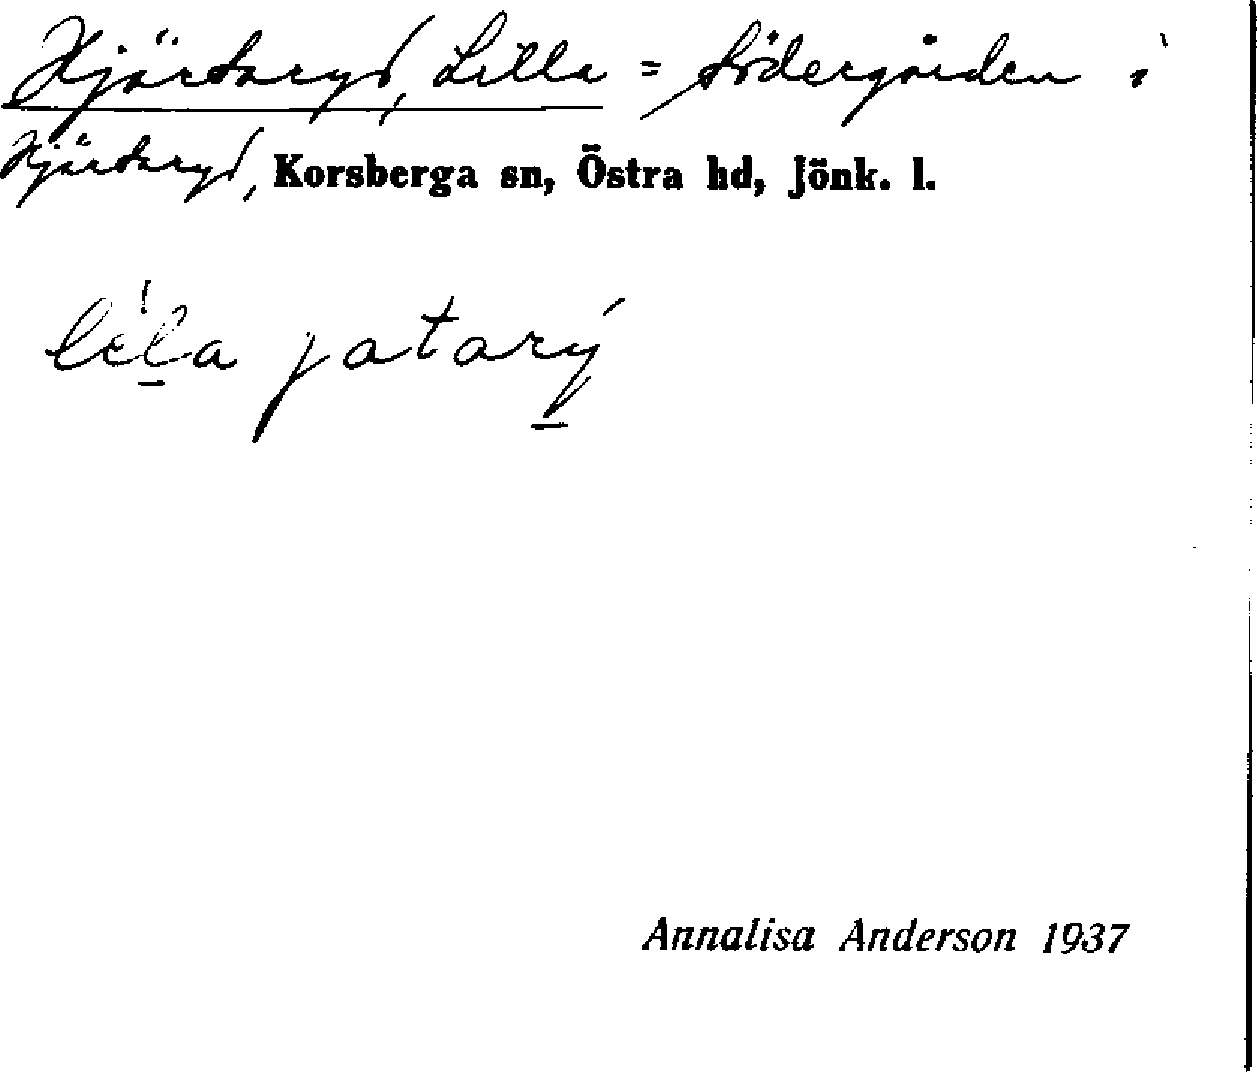 Hjärtaryd, Lilla = Södergården i
Hjärtaryd, Korsberga sn, Östra hd, Jönk. l.
lila jatarý
Annalisa Anderson 1937